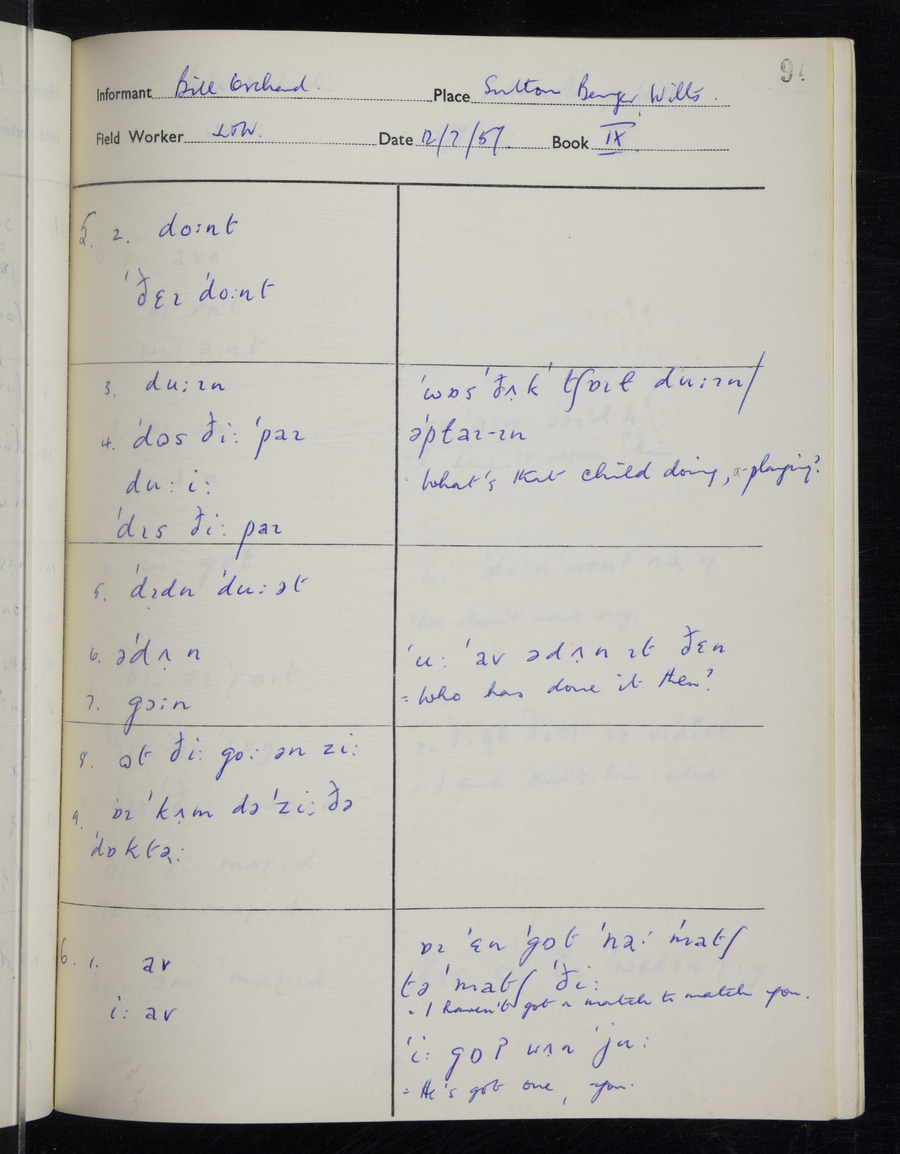 94
Informant Bill Orchard. Place Sutton Benger, Wilts.
Field Worker Date 12/7/57. Book IX
5. 2. doːnt
ˈðɛɪ ˈdoːnt
3. duːɪn
4. ˈdəs ðiː ˈpaɪ
duː iː
ˈdɪs ðiː paɪ
ˈwɒs ˈðʌk ˈtʃɒɪɫ duːɪn/
əˈpɫaɪ-ɪn
= What's that child doing, a-playing?
5. ˈdɪdn ˈduː ət
6. əˈdʌn
7. gɔin
ˈuː ˈav ədʌn ɪt ðɛn
= Who has done it then?
8. ət ðiː goː ən ziː
9. ɒɪ ˈkʌm də ˈziː ðə
ˈdɒktəː
6. 1. av
iː av
ɒɪ ˈɛn ˈgɒt ˈnəː ˈmatʃ
tə ˈmatʃ ˈðiː
= I haven't got a match to match you.
ˈiː gɒʔ wʌn ˈjuː
= He's got one, you.